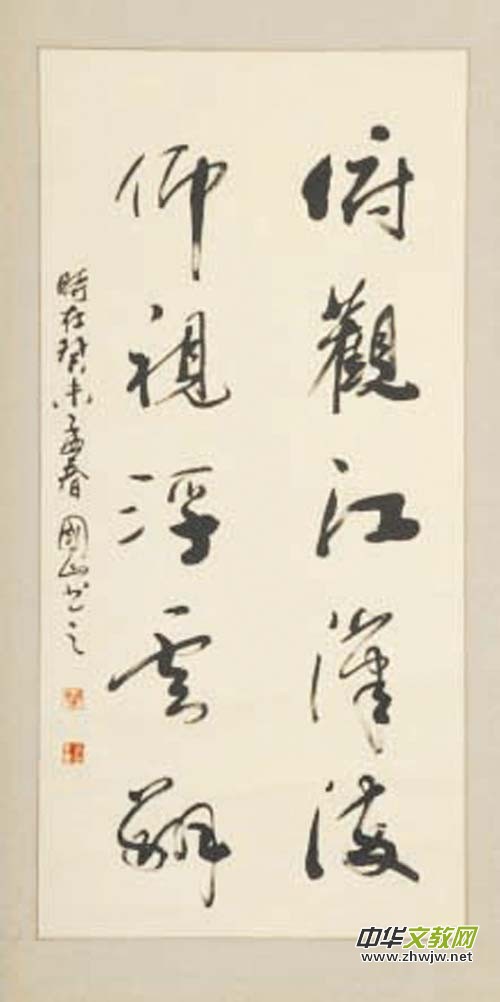 俯觀江漢流
仰視浮雲翔
時在癸未孟春 國山書之
中华文教网
www.zhwjw.net